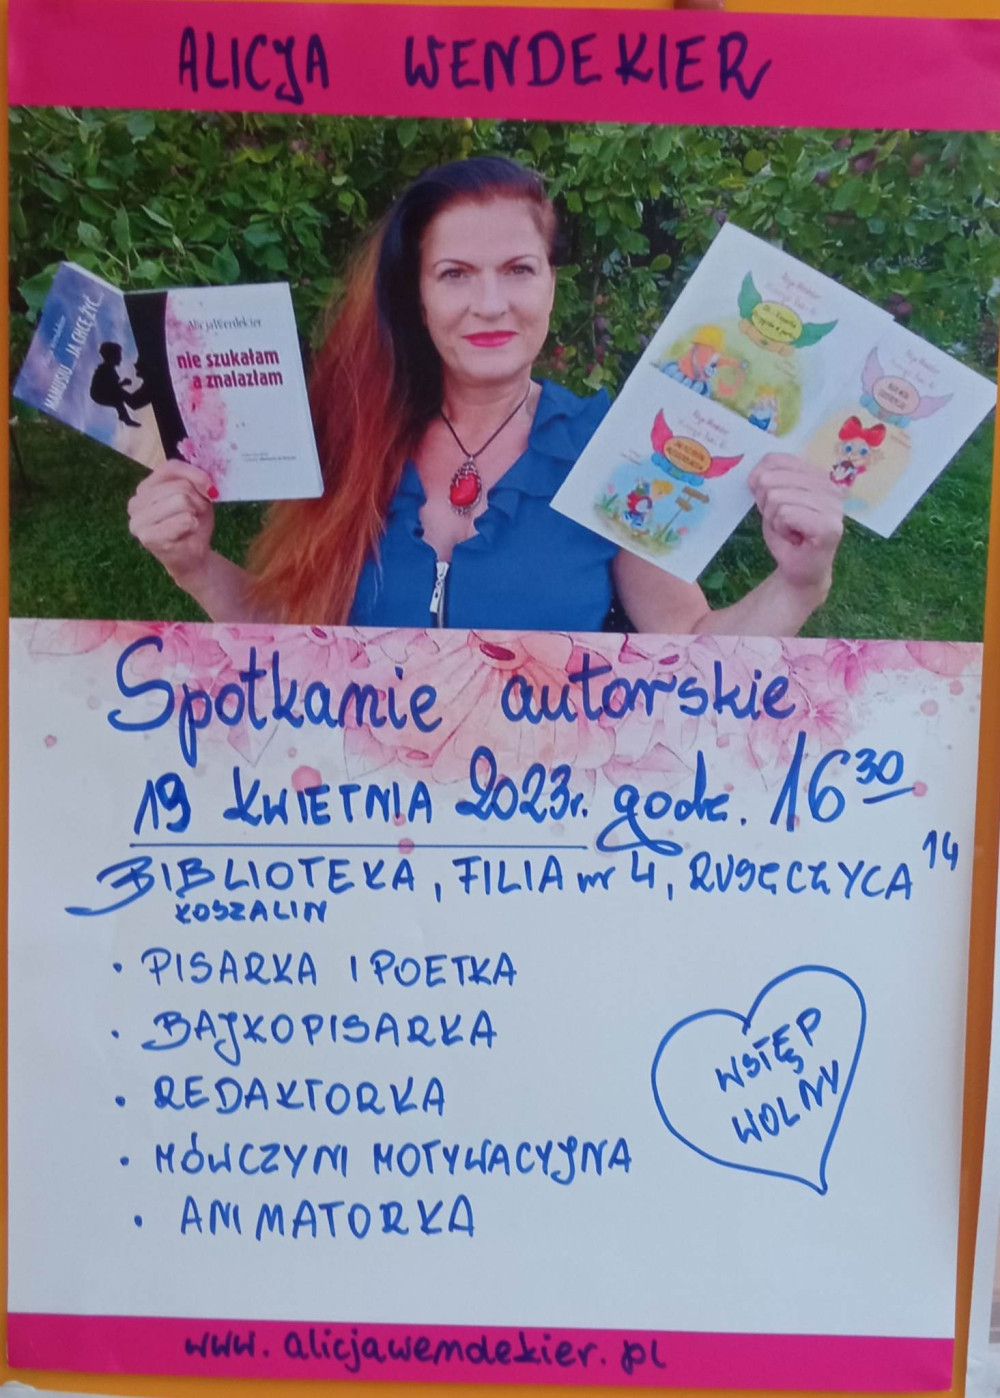 ALICJA WENDEKIER
MAMUSIU... JA CHCĘ ŻYĆ...
Alicja Wendekier
nie szukałam
a znalazłam
Spotkanie autorskie
19 KWIETNIA 2023r. godz. 16³⁰
BIBLIOTEKA, FILIA nr 4, RUSZCZYCA 14
KOSZALIN
• PISARKA I POETKA
• BAJKOPISARKA
• REDAKTORKA
• MÓWCZYNI MOTYWACYJNA
• ANIMATORKA
WSTĘP
WOLNY
www.alicjawendekier.pl